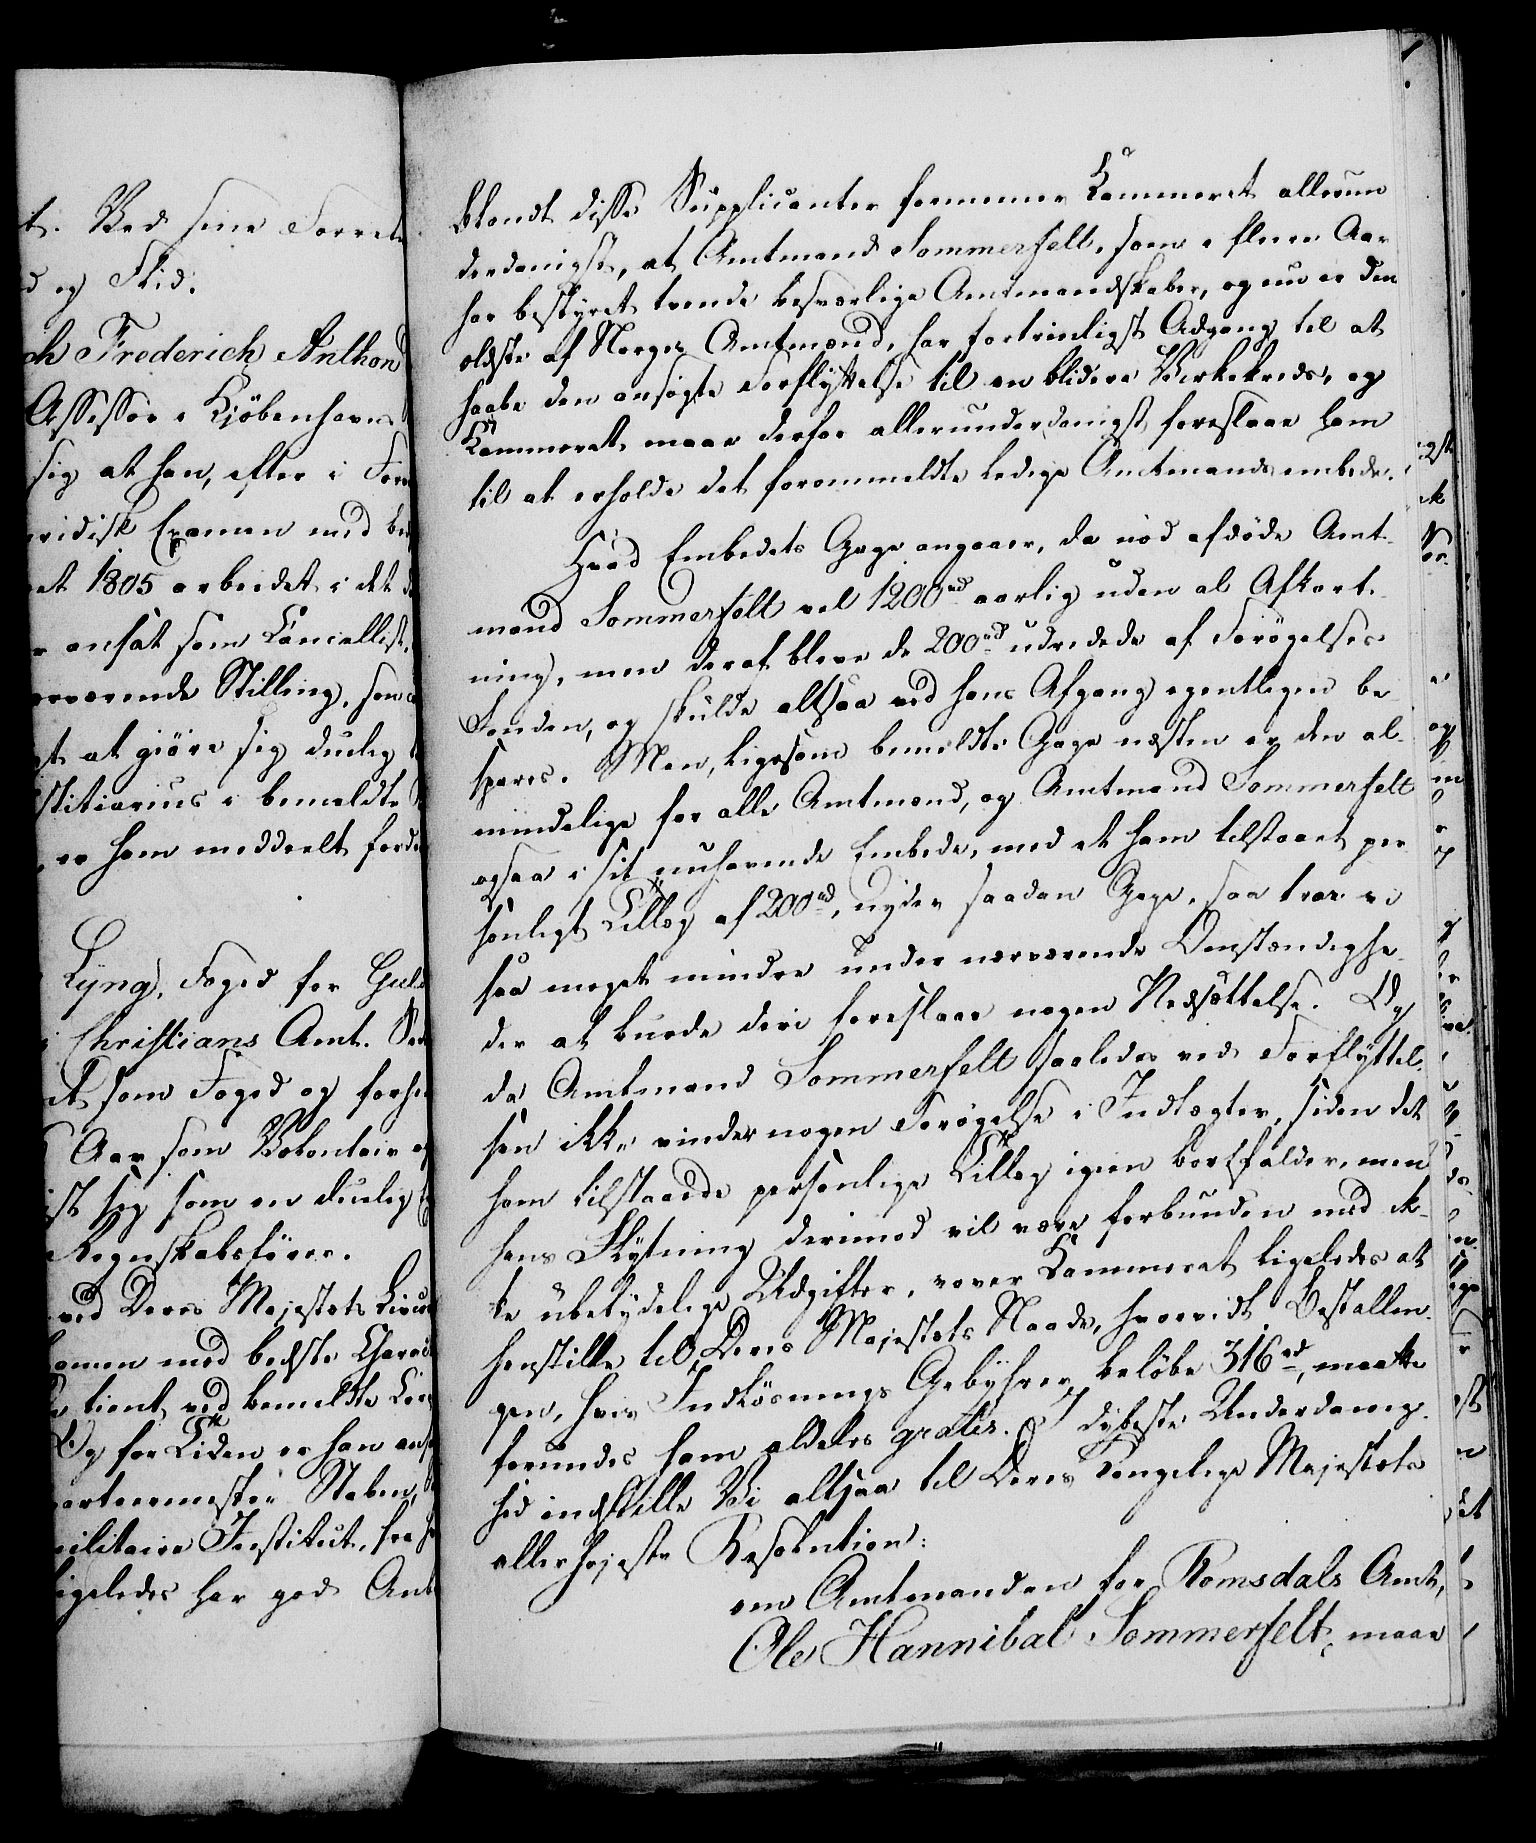 t. Ved sine Forrets
d og Flid.
ch Frederich Anthon
Assessor i Kjöbenhavns
sig at han, efter i
ridisk Examen med be
et 1805 arbeidet i det
ansat som Cancellist,
rværende Stilling, som
at giöre sig duelig
stitiarius i bemeldte
er ham meddeelt
Lyng, Foged for Gul
Christians Amt.
som Foged og forhen
Aar som Volontair
ist sig som en duelig
Regnskabsförer.
ved Deres Majestæts
amen med bedste Charac
tient ved bemeldte
Og for Tiden er han ans
Staben,
ilitaire Institut, fra
igeledes har god
blandt disse Supplicanter formener Kammeret allerun
derdanigst, at Amtmand Sommerfelt, som i flere Aar
har bestyret tvende besværlige Amtmandskaber, og nu er den
ældste af Norges Amtmænd, har fortrinligst Adgang til at
haabe den ansögte Forflyttelse til en blidere Virkekreds, og
Kammeret maae derfor allerunderdanigst foreslaae ham
til at erholde det forommeldte ledige Amtmandsembede.
Hvad Embedets Gage angaaer, da nöd afdöde Amt-
mand Sommerfelt vel 1200 rd aarlig uden al Afkort-
ning, men deraf bleve de 200 rd udredede af Forögelses
Fonden, og skulde altsaa ved hans Afgang egentligen be-
spares. Men, ligesom bemeldte Gage næsten er den al-
mindelige for alle Amtmænd, og Amtmand Sommerfelt
ogsaa i sit nuhavende Embede, med et ham tilstaaet per-
sonligt Tillæg af 200 rd, nyder saadan Gage, saa troe vi
saa meget mindre under nærværende Omstændighe-
der at burde deri foreslaae nogen Nedsættelse. Og
da Amtmand Sommerfelt saaledes ved Forflyttel-
sen ikke vinder nogen Forögelse i Indtægter, siden det
ham tilstaaede personlige Tillæg igien bortfalder, men
hans Flytning derimod vil være forbunden med ik-
ke ubetydelige Udgifter, vover Kammeret ligeledes at
henstille til Deres Majestæts Naade, hvorvidt Bestallin-
gen, hvis Indlösnings Gebyhrer beløbe 316 rd, maatte
forundes ham aldeles gratis. I dybeste Underdanig-
hed indstille Vi altsaa til Deres Kongelige Majestæts
allerhöjeste Resolution:
om Amtmanden for Romsdals Amt,
Ole Hannibal Sommerfelt, maae